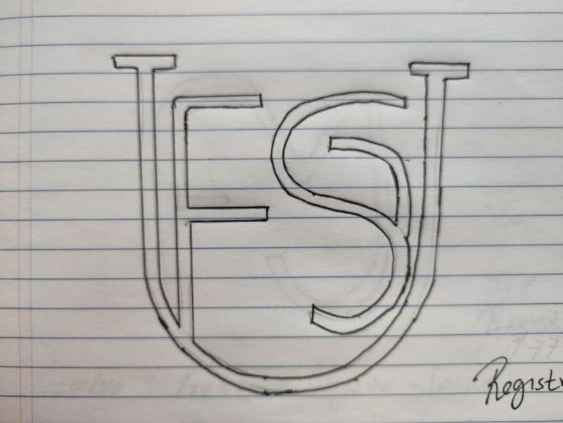 FSU
Registr